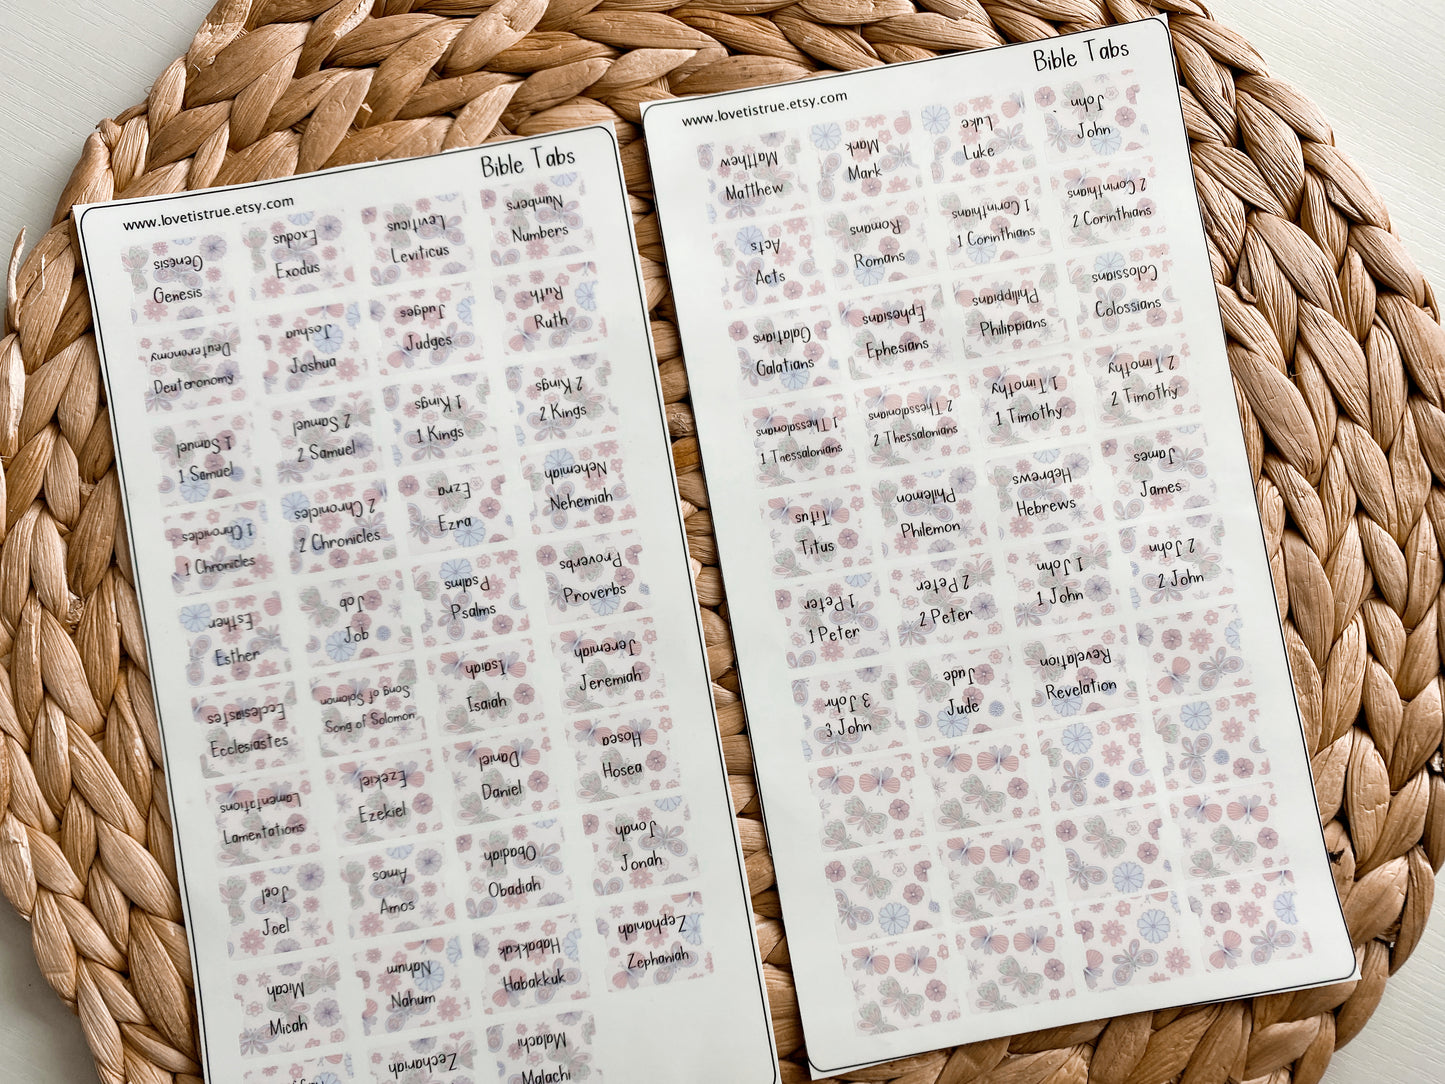 www.lovetistrue.etsy.com
Bible Tabs
Genesis
Genesis
Exodus
Exodus
Leviticus
Leviticus
Numbers
Numbers
Deuteronomy
Deuteronomy
Joshua
Joshua
Judges
Judges
Ruth
Ruth
1 Samuel
1 Samuel
2 Samuel
2 Samuel
1 Kings
1 Kings
2 Kings
2 Kings
1 Chronicles
1 Chronicles
2 Chronicles
2 Chronicles
Ezra
Ezra
Nehemiah
Nehemiah
Esther
Esther
Job
Job
Psalms
Psalms
Proverbs
Proverbs
Ecclesiastes
Ecclesiastes
Song of Solomon
Song of Solomon
Isaiah
Isaiah
Jeremiah
Jeremiah
Lamentations
Lamentations
Ezekiel
Ezekiel
Daniel
Daniel
Hosea
Hosea
Joel
Joel
Amos
Amos
Obadiah
Obadiah
Jonah
Jonah
Micah
Micah
Nahum
Nahum
Habakkuk
Habakkuk
Zephaniah
Zephaniah
Zechariah
Malachi
Malachi
www.lovetistrue.etsy.com
Bible Tabs
Matthew
Matthew
Mark
Mark
Luke
Luke
John
John
Acts
Acts
Romans
Romans
1 Corinthians
1 Corinthians
2 Corinthians
2 Corinthians
Galatians
Galatians
Ephesians
Ephesians
Philippians
Philippians
Colossians
Colossians
1 Thessalonians
1 Thessalonians
2 Thessalonians
2 Thessalonians
1 Timothy
1 Timothy
2 Timothy
2 Timothy
Titus
Titus
Philemon
Philemon
Hebrews
Hebrews
James
James
1 Peter
1 Peter
2 Peter
2 Peter
1 John
1 John
2 John
2 John
3 John
3 John
Jude
Jude
Revelation
Revelation